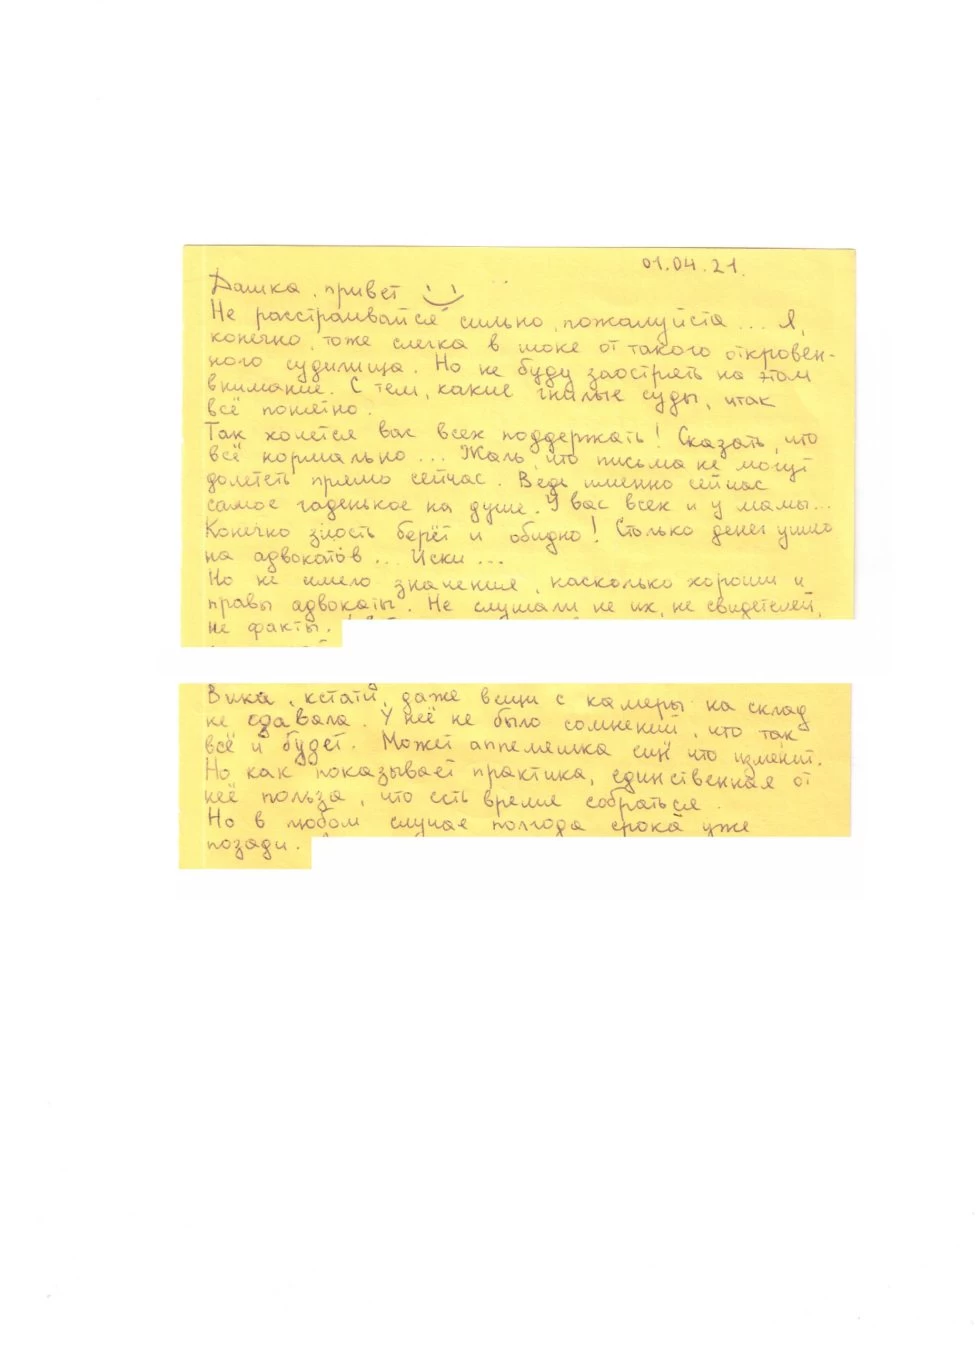 01.04.21.
Дашка, привет
Не расстраивайся сильно, пожалуйста... Я,
конечно, тоже слегка в шоке от такого откровен-
ного судилища. Но не буду заострять на этом
внимание. С тем, какие гнилые суды, итак
всё понятно.
Так хочется вас всех поддержать! Сказать, что
всё нормально... Жаль, что письма не могут
долететь прямо сейчас. Ведь именно сейчас
самое гаденькое на душе. У вас всех и у мамы...
Конечно злость берёт и обидно! Столько денег ушло
на адвокатов... Иски...
Но не имело значение, насколько хороши и
правы адвокаты. Не слушали не их, не свидетелей,
не факты.
Вика, кстати, даже вещи с камеры на склад
не сдавала. У неё не было сомнений, что так
всё и будет. Может аппеляшка ещё что изменит.
Но как показывает практика, единственная от
неё польза, что есть время собраться.
Но в любом случае полгода срока уже
позади.